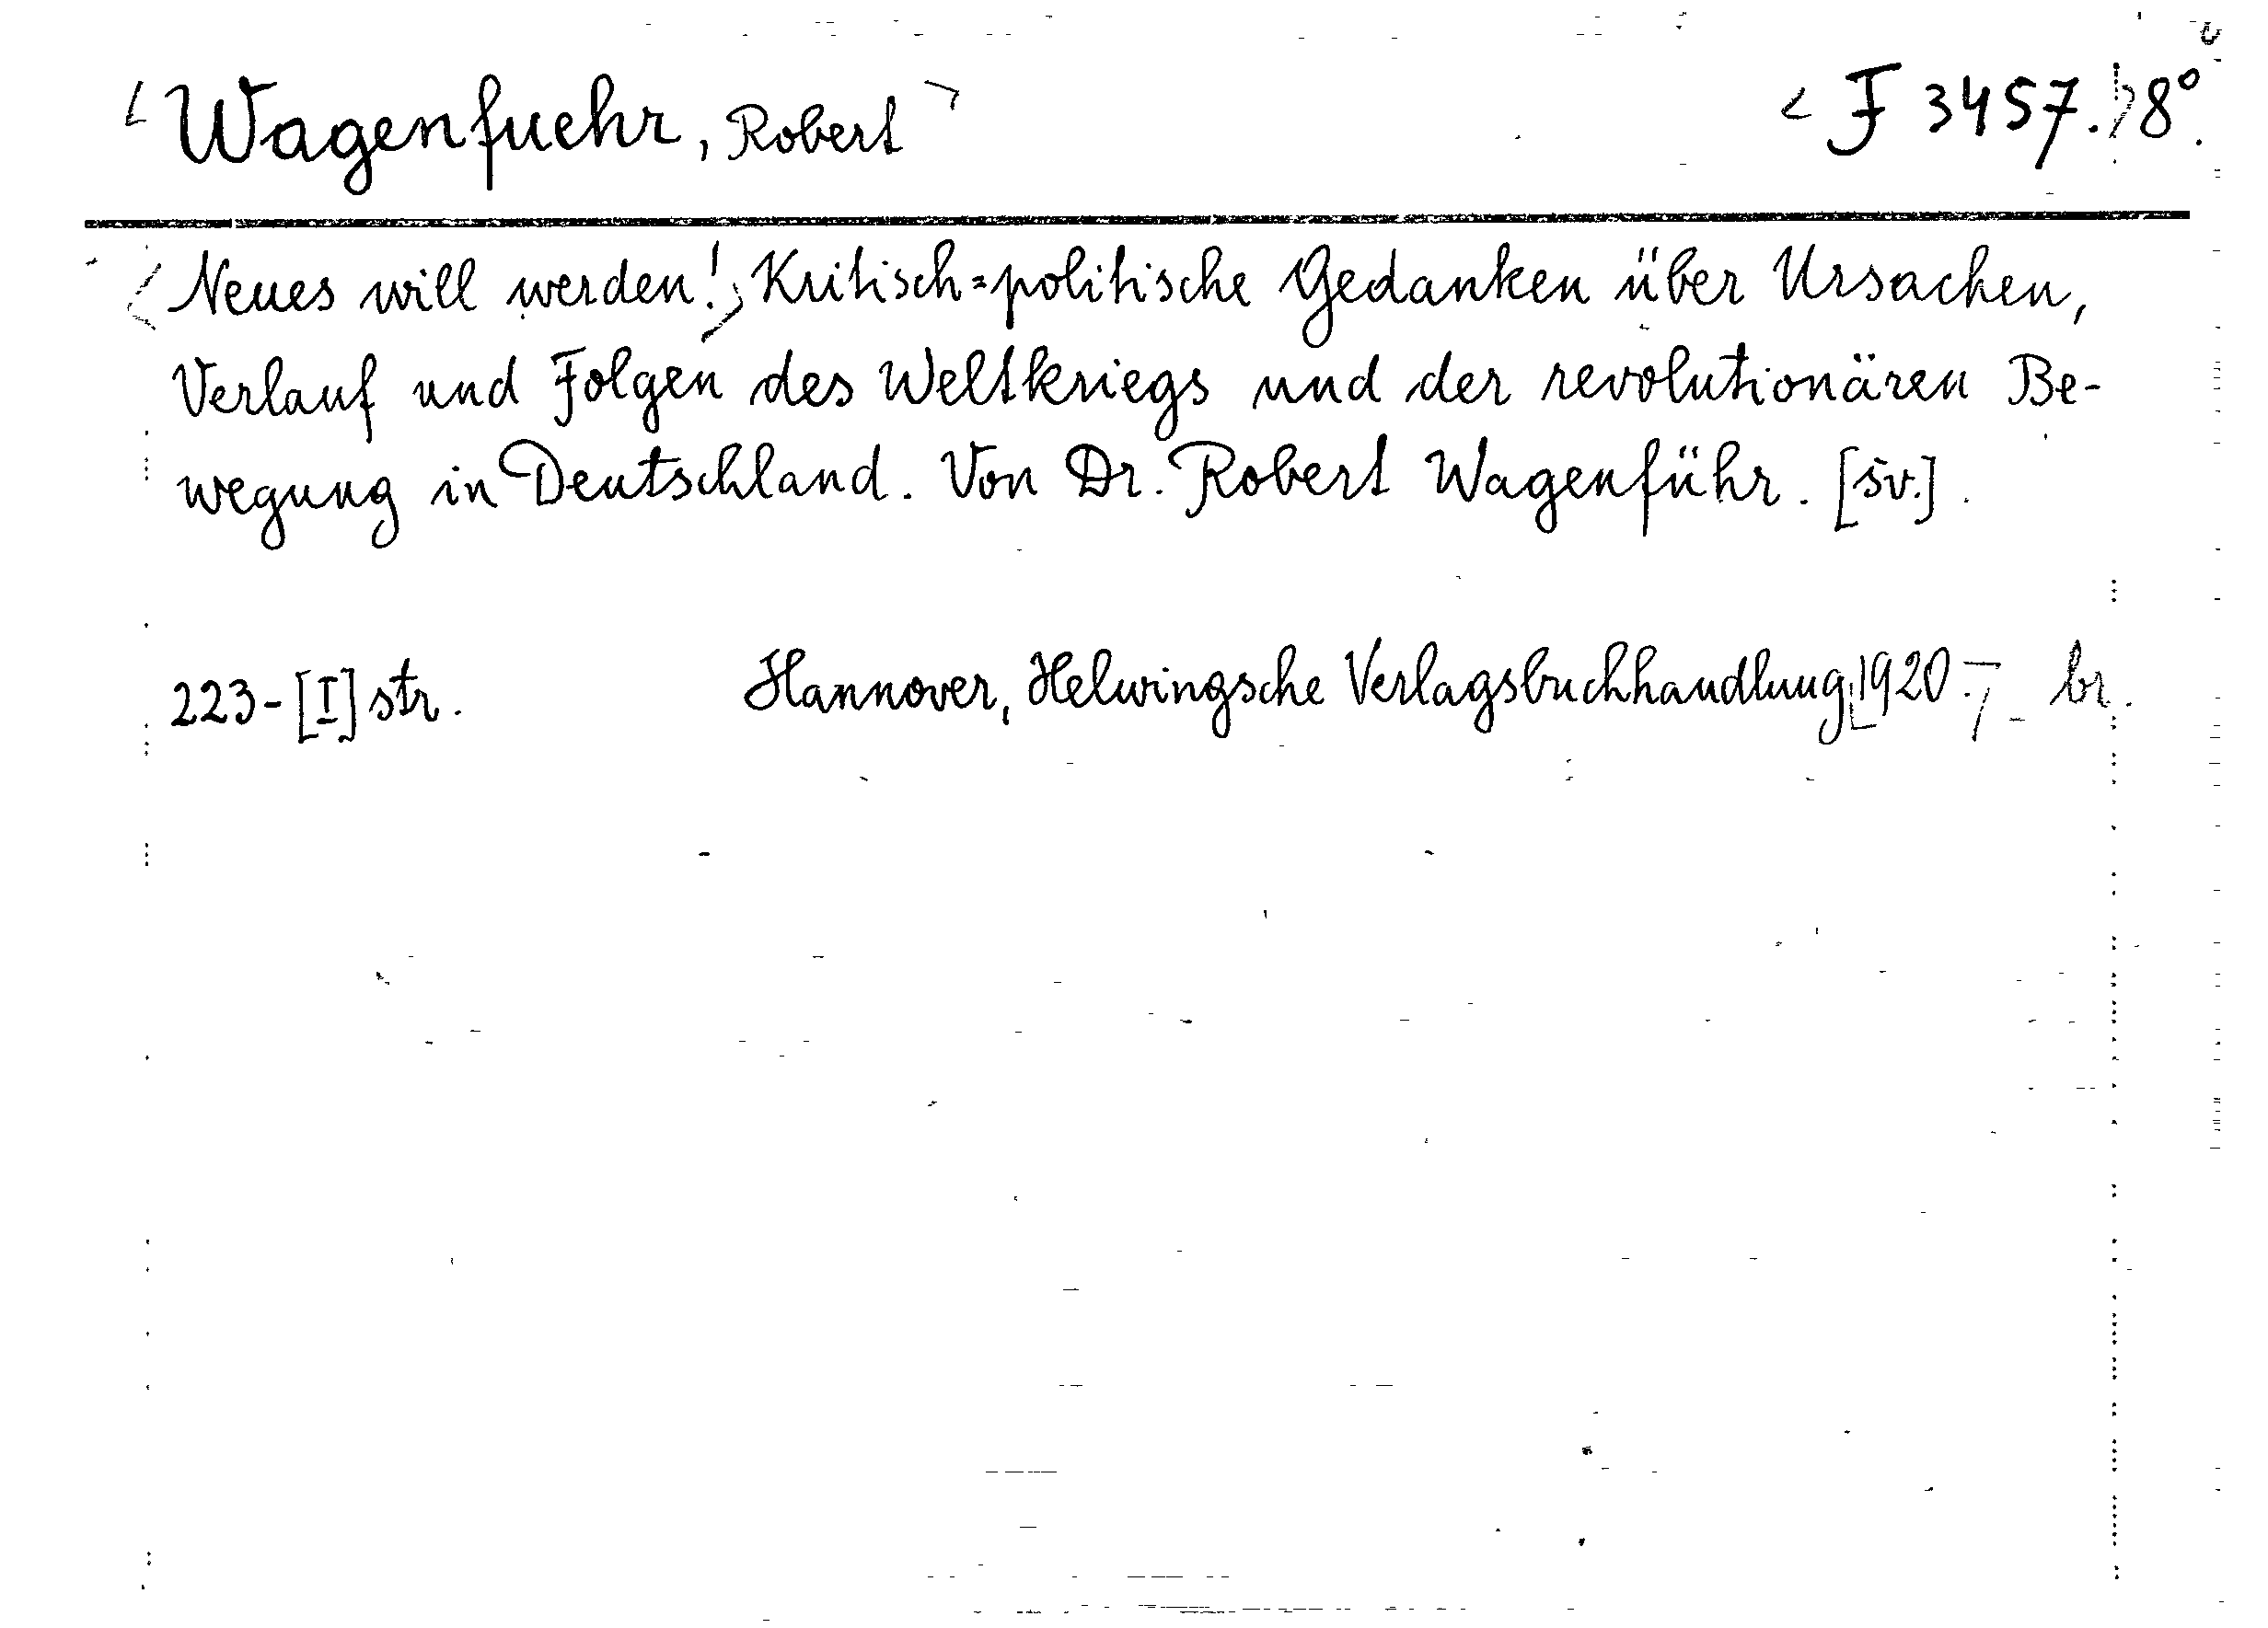 Wagenfuehr, Robert F 3457. 8°.
Neues will werden! Kritisch=politische Gedanken über Ursachen,
Verlauf und Folgen des Weltkriegs und der revolutionären Be-
wegung in Deutschland. Von Dr. Robert Wagenführ. [sv.].
223-[I] str. Hannover, Helwingsche Verlagsbuchhandlung, 1920. br.